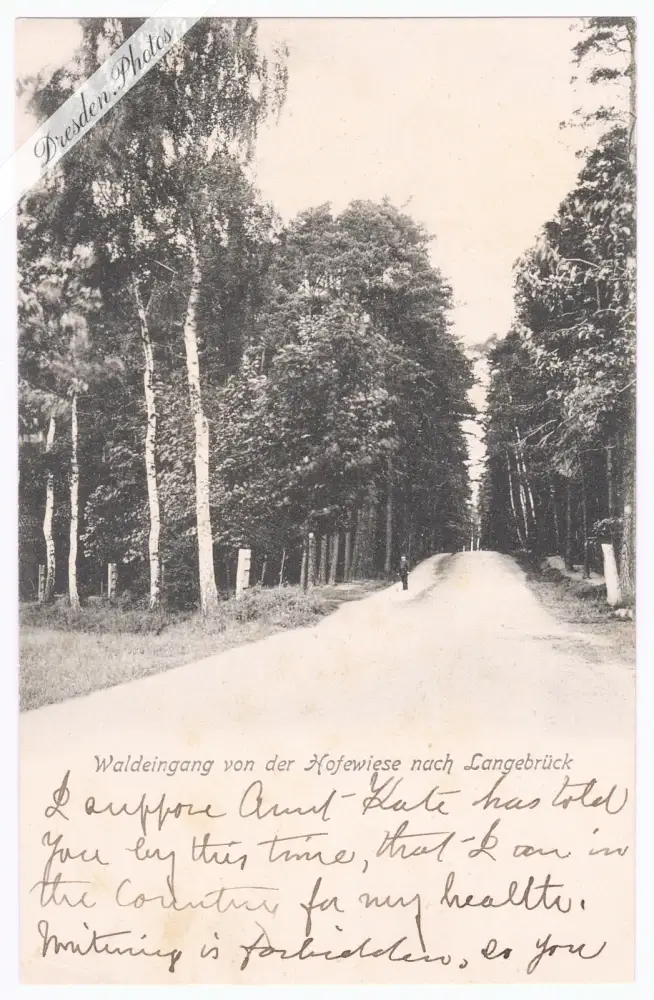 Dresden Photos
Waldeingang von der Hofewiese nach Langebrück
I suppose Aunt Kate has told
You by this time, that I am in
the Country for my health.
Writing is forbidden, so you